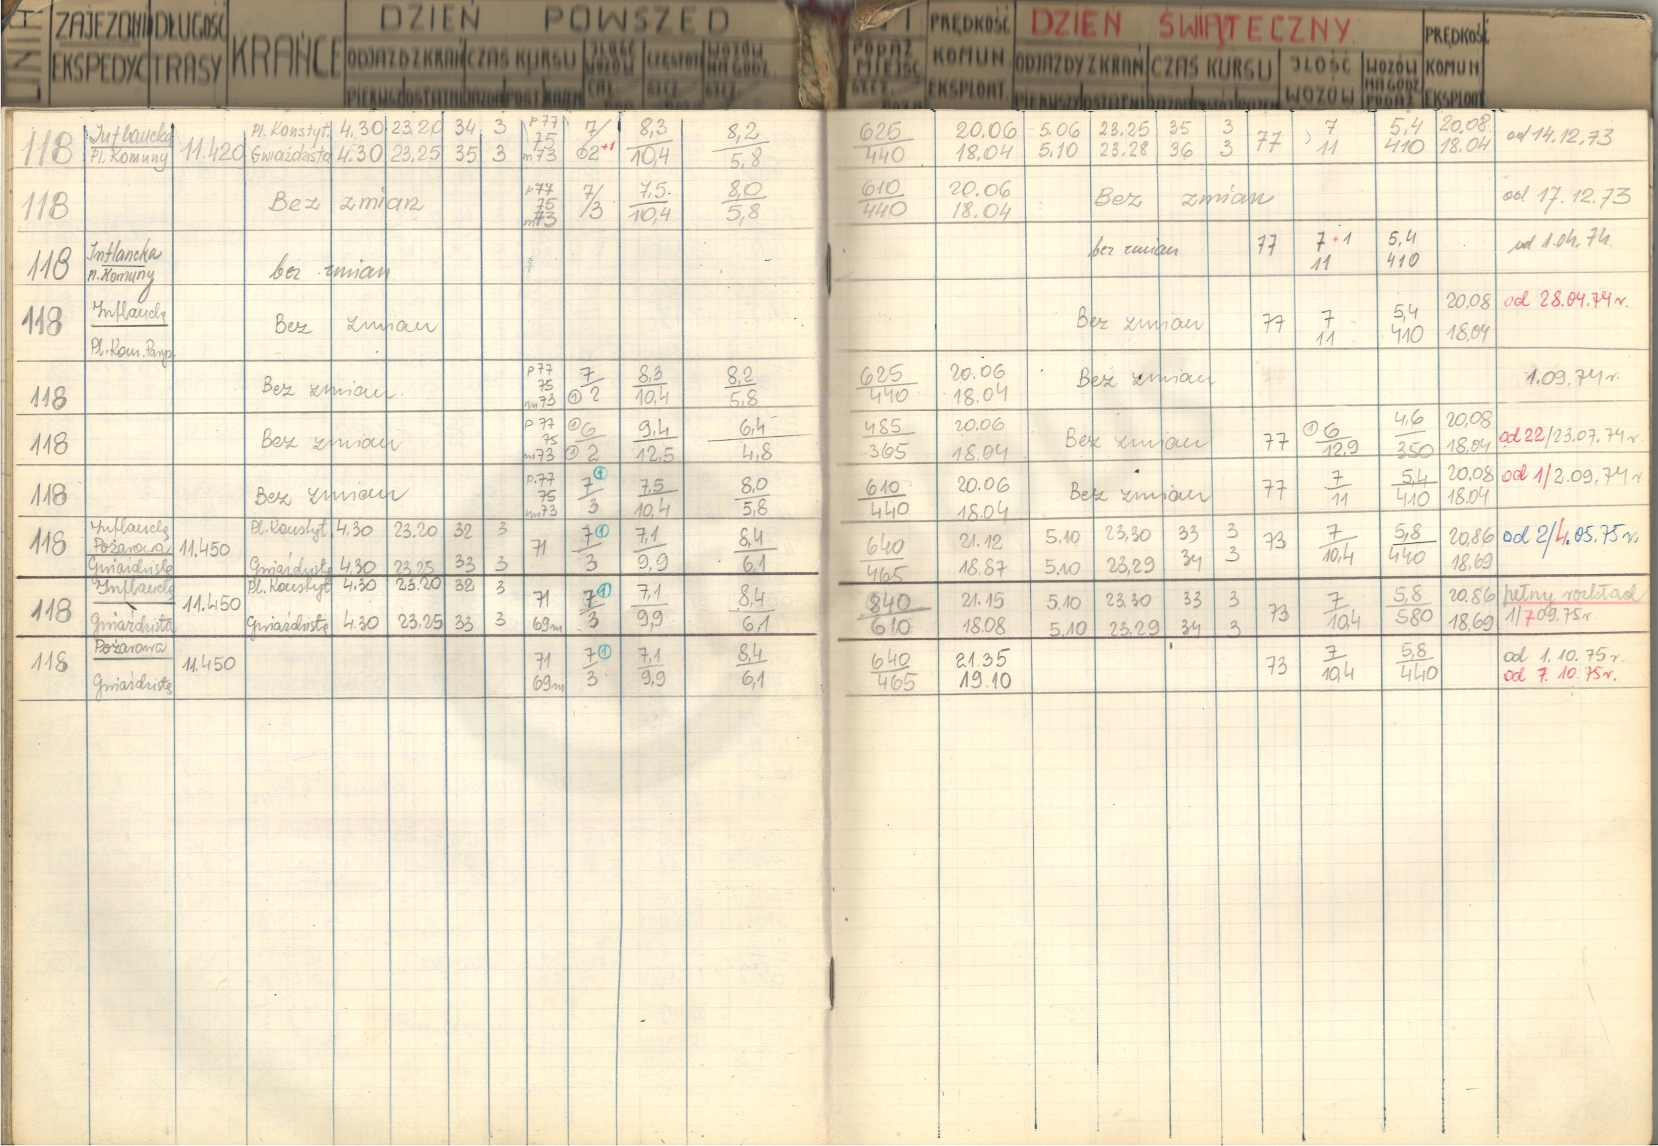 LINIA ZAJEZDNIA DŁUGOŚĆ KRAŃCE DZIEŃ POWSZED NI PRĘDKOŚĆ DZIEŃ ŚWIĄTECZNY PRĘDKOŚĆ
EKSPEDYC TRASY ODJAZD Z KRAŃ CZAS KURSU ILOŚĆ WOZÓW CZĘSTOTL WOZÓW NA GODZ. PODAŻ MIEJSC KOMUN ODJAZDY Z KRAŃ CZAS KURSU ILOŚĆ WOZÓW WOZÓW NA GODZ KOMUN
PIERWSZY OSTATNI JAZDA POST. RAZEM SZCZ. EKSPLOAT PIERWSZY OSTATNI EKSPLOAT
118 Inflancka 11.420 Pl. Konstyt. 4.30 23.20 34 3 p77 7/ 8,3 8,2 625 20.06 5.06 23.25 35 3 77 7 5,4 20,08 od 14.12.73
Pl. Komuny Gwiaździsta 4.30 23.25 35 3 75 m73 2+1 10,4 5,8 440 18.04 5.10 23.28 36 3 11 410 18.04
118 Bez zmian p77 75 m73 7/3 7,5 10,4 8,0 5,8 610 440 20.06 18.04 Bez zmian od 17.12.73
118 Inflancka Pl. Komuny bez zmian bez zmian 77 7+1 11 5,4 410 od 1.04.74.
118 Inflancka Pl. Kom. Paryż. Bez zmian Bez zmian 77 7 11 5,4 410 20,08 18,04 od 28.04.74 r.
118 Bez zmian p77 75 m73 7 ① 2 8,3 10,4 8,2 5,8 625 440 20.06 18.04 Bez zmian 1.09.74 r.
118 Bez zmian p77 75 m73 ①6 ① 2 9,4 12,5 6,4 4,8 485 365 20.06 18.04 Bez zmian 77 ① 6 12,9 4,6 350 20,08 18,04 od 22/23.07.74 r.
118 Bez zmian p.77 75 m73 7① 3 7,5 10,4 8,0 5,8 610 440 20.06 18.04 Bez zmian 77 7 11 5,4 410 20,08 18.04 od 1/2.09.74 r
118 Inflancka Pożarowa Gwiaździsta 11.450 Pl. Konstyt. 4.30 23.20 32 3 71 7① 7,1 8,4 640 21.12 5.10 23,30 33 3 73 7 5,8 20,86 od 2/4.05.75 r.
Gwiaździsta 4.30 23.25 33 3 3 9,9 6,1 465 18.87 5.10 23,29 34 3 10,4 440 18,69
118 Inflancka Gwiaździsta 11.450 Pl. Konstyt 4.30 23.20 32 3 71 7① 7,1 8,4 840 21.15 5.10 23.30 33 3 73 7 5,8 20.86 pełny rozkład
Gwiaździsta 4.30 23.25 33 3 69m 3 9,9 6,1 610 18.08 5.10 23.29 34 3 10,4 580 18,69 1/7 09.75 r.
118 Pożarowa Gwiaździsta 11.450 71 7① 7,1 8,4 640 21.35 73 7 5,8 od 1.10.75 r.
69m 3 9,9 6,1 465 19.10 10,4 440 od 7.10.75 r.